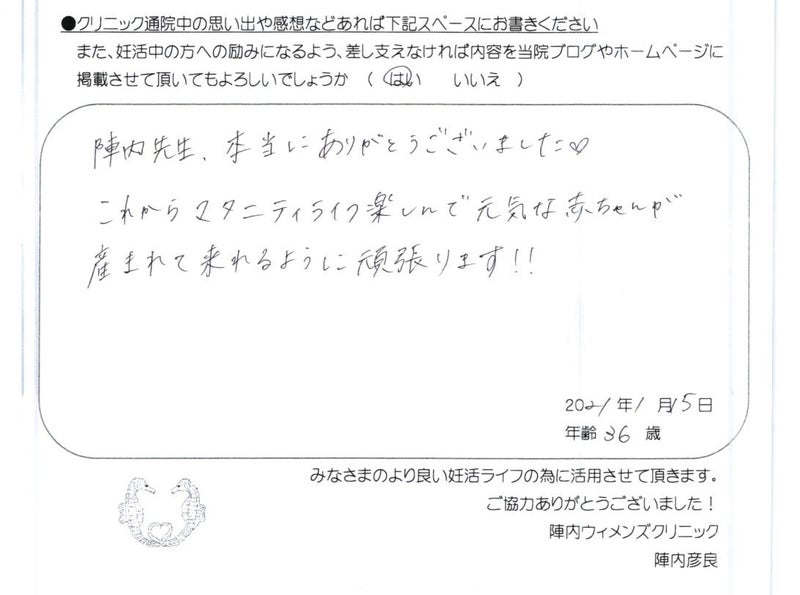 ●クリニック通院中の思い出や感想などあれば下記スペースにお書きください
また、妊活中の方への励みになるよう、差し支えなければ内容を当院ブログやホームページに
掲載させて頂いてもよろしいでしょうか （ はい　いいえ ）
陣内先生、本当にありがとうございました♡
これからマタニティライフ楽しんで元気な赤ちゃんが
産まれて来れるように頑張ります!!
2021年1月15日
年齢36歳
みなさまのより良い妊活ライフの為に活用させて頂きます。
ご協力ありがとうございました！
陣内ウィメンズクリニック
陣内彦良